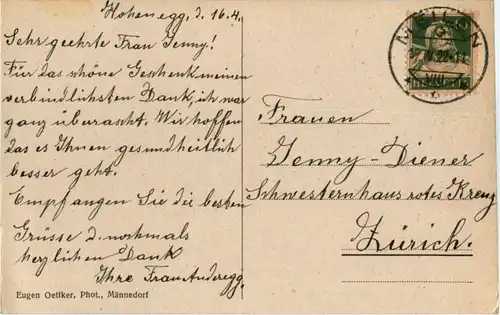 Hohenegg, d. 16.4.
Sehr geehrte Frau Jenny!
Für das schöne Geschenk meinen
verbindlichsten Dank, ich war
ganz überascht. Wir hoffen
das es Ihnen gesundheitlich
besser geht.
Empfangen Sie die besten
Grüsse u. nochmals
herzlichen Dank
Ihre Frau Anderegg.
Eugen Oetiker, Phot., Männedorf
MEILEN
VIII
Frauen
Jenny-Diener
Schwesternhaus rotes Kreuz
Zürich.